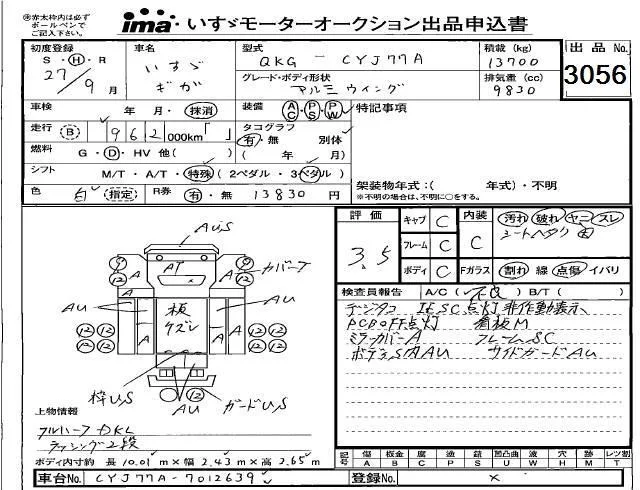 ㊟赤太枠内は必ず
ボールペンで
ご記入下さい。
ima いすゞモーターオークション出品申込書
初度登録
S・H・R
27/9月
車名
いすゞ
ギガ
型式
QKG - CYJ77A
積載 (kg)
13700
出品No.
3056
グレード・ボディ形状
アルミウイング
排気量 (cc)
9830
車検 年 月・抹消
装備 AC・PS・PW
特記事項
走行 B 962 000km「 」
タコグラフ
有・無 別体
( 年 月)
燃料 G・D・HV 他( )
シフト M/T・A/T・特殊 ( 2ペダル・3ペダル )
色 白 指定
R券 有・無 13830 円
架装物年式:( 年式)・不明
※不明の場合は、不明に○をする。
評価
3.5
キャブ C
フレーム C
ボディ C
内装 C
汚れ・破れ・ヤニ・スレ
シートヘタリ
Fガラス 割れ 線 点傷・イバリ
検査員報告 A/C( 不良 ) B/T( )
デージタコ IESC点灯 非作動表示
PCSOFF点灯 看板M
ミラーカバーA フレームSC
ボディS内AU サイドガードAU
AU,S
カバーナ
AT
A
AU
板
ケズレ
AU
⑨
⑫
枠U,S
AU
ガードU,S
上物情報
フルハーフ DKL
ラッシング2段
ボディ内寸約 長 10.01 m×幅 2.43 m×高 2.65 m
記号 傷A 板金B 腐C 塗P 錆S 凹凸曲U 波W 穴H 跡M レツ割T
車台No. CYJ77A-7012639
登録No. ×